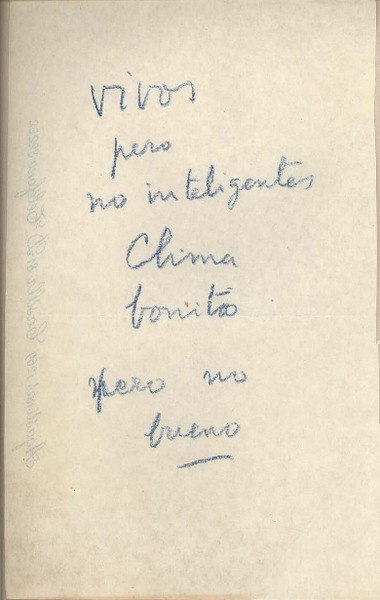 vivos
pero
no inteligentes
Clima
bonito
pero no
bueno